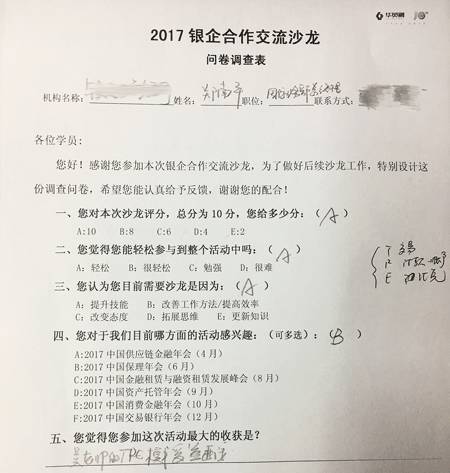 华贸融 10
2017 银企合作交流沙龙
问卷调查表
机构名称: 姓名: 职位: 联系方式:
各位学员:
您好！感谢您参加本次银企合作交流沙龙，为了做好后续沙龙工作，特别设计这
份调查问卷，希望您能认真给予反馈，谢谢您的配合！
一、您对本次沙龙评分，总分为 10 分，您给多少分：（ A ）
A:10 B:8 C:6 D:4 E:2
二、您觉得您能轻松参与到整个活动中吗：（ A ）
A: 轻松 B: 很轻松 C: 勉强 D: 很难
三、您认为您目前需要沙龙是因为：（ A ）
A: 提升技能 B: 改善工作方法/提高效率
C: 改变态度 D: 拓展思维 E: 更新知识
四、您对于我们目前哪方面的活动感兴趣：（可多选）：（ B ）
A:2017 中国供应链金融年会（4 月）
B:2017 中国保理年会（6 月）
C:2017 中国金融租赁与融资租赁发展峰会（8 月）
D:2017 中国资产托管年会（9 月）
E:2017 中国消费金融年会（10 月）
F:2017 中国交易银行年会（12 月）
五、您觉得您参加这次活动最大的收获是？